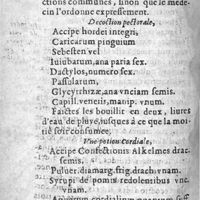 ctions communes, sinon que le mede-
cin l'ordonne expressement.
Decoction pectorale,
Accipe hordei integri,
Caricarum pinguium
Sebesten vel
Iuiubarum, ana paria sex.
Dactylos, numero sex.
Passularum,
Glycyrrhizæ, ana vnciam semis.
Capill. veneris, manip. vnum.
Faictes les bouillir en deux, liures
d'eau de pluye, iusques à ce que la moi-
tié soit consumee.
Vne potion cordiale,
Accipe Confectionis Alkelmes drac.
semis.
Puluer. diamarg. frig. drachv nam.
Syrupi de pomis redolentibus vnc.
vnam.